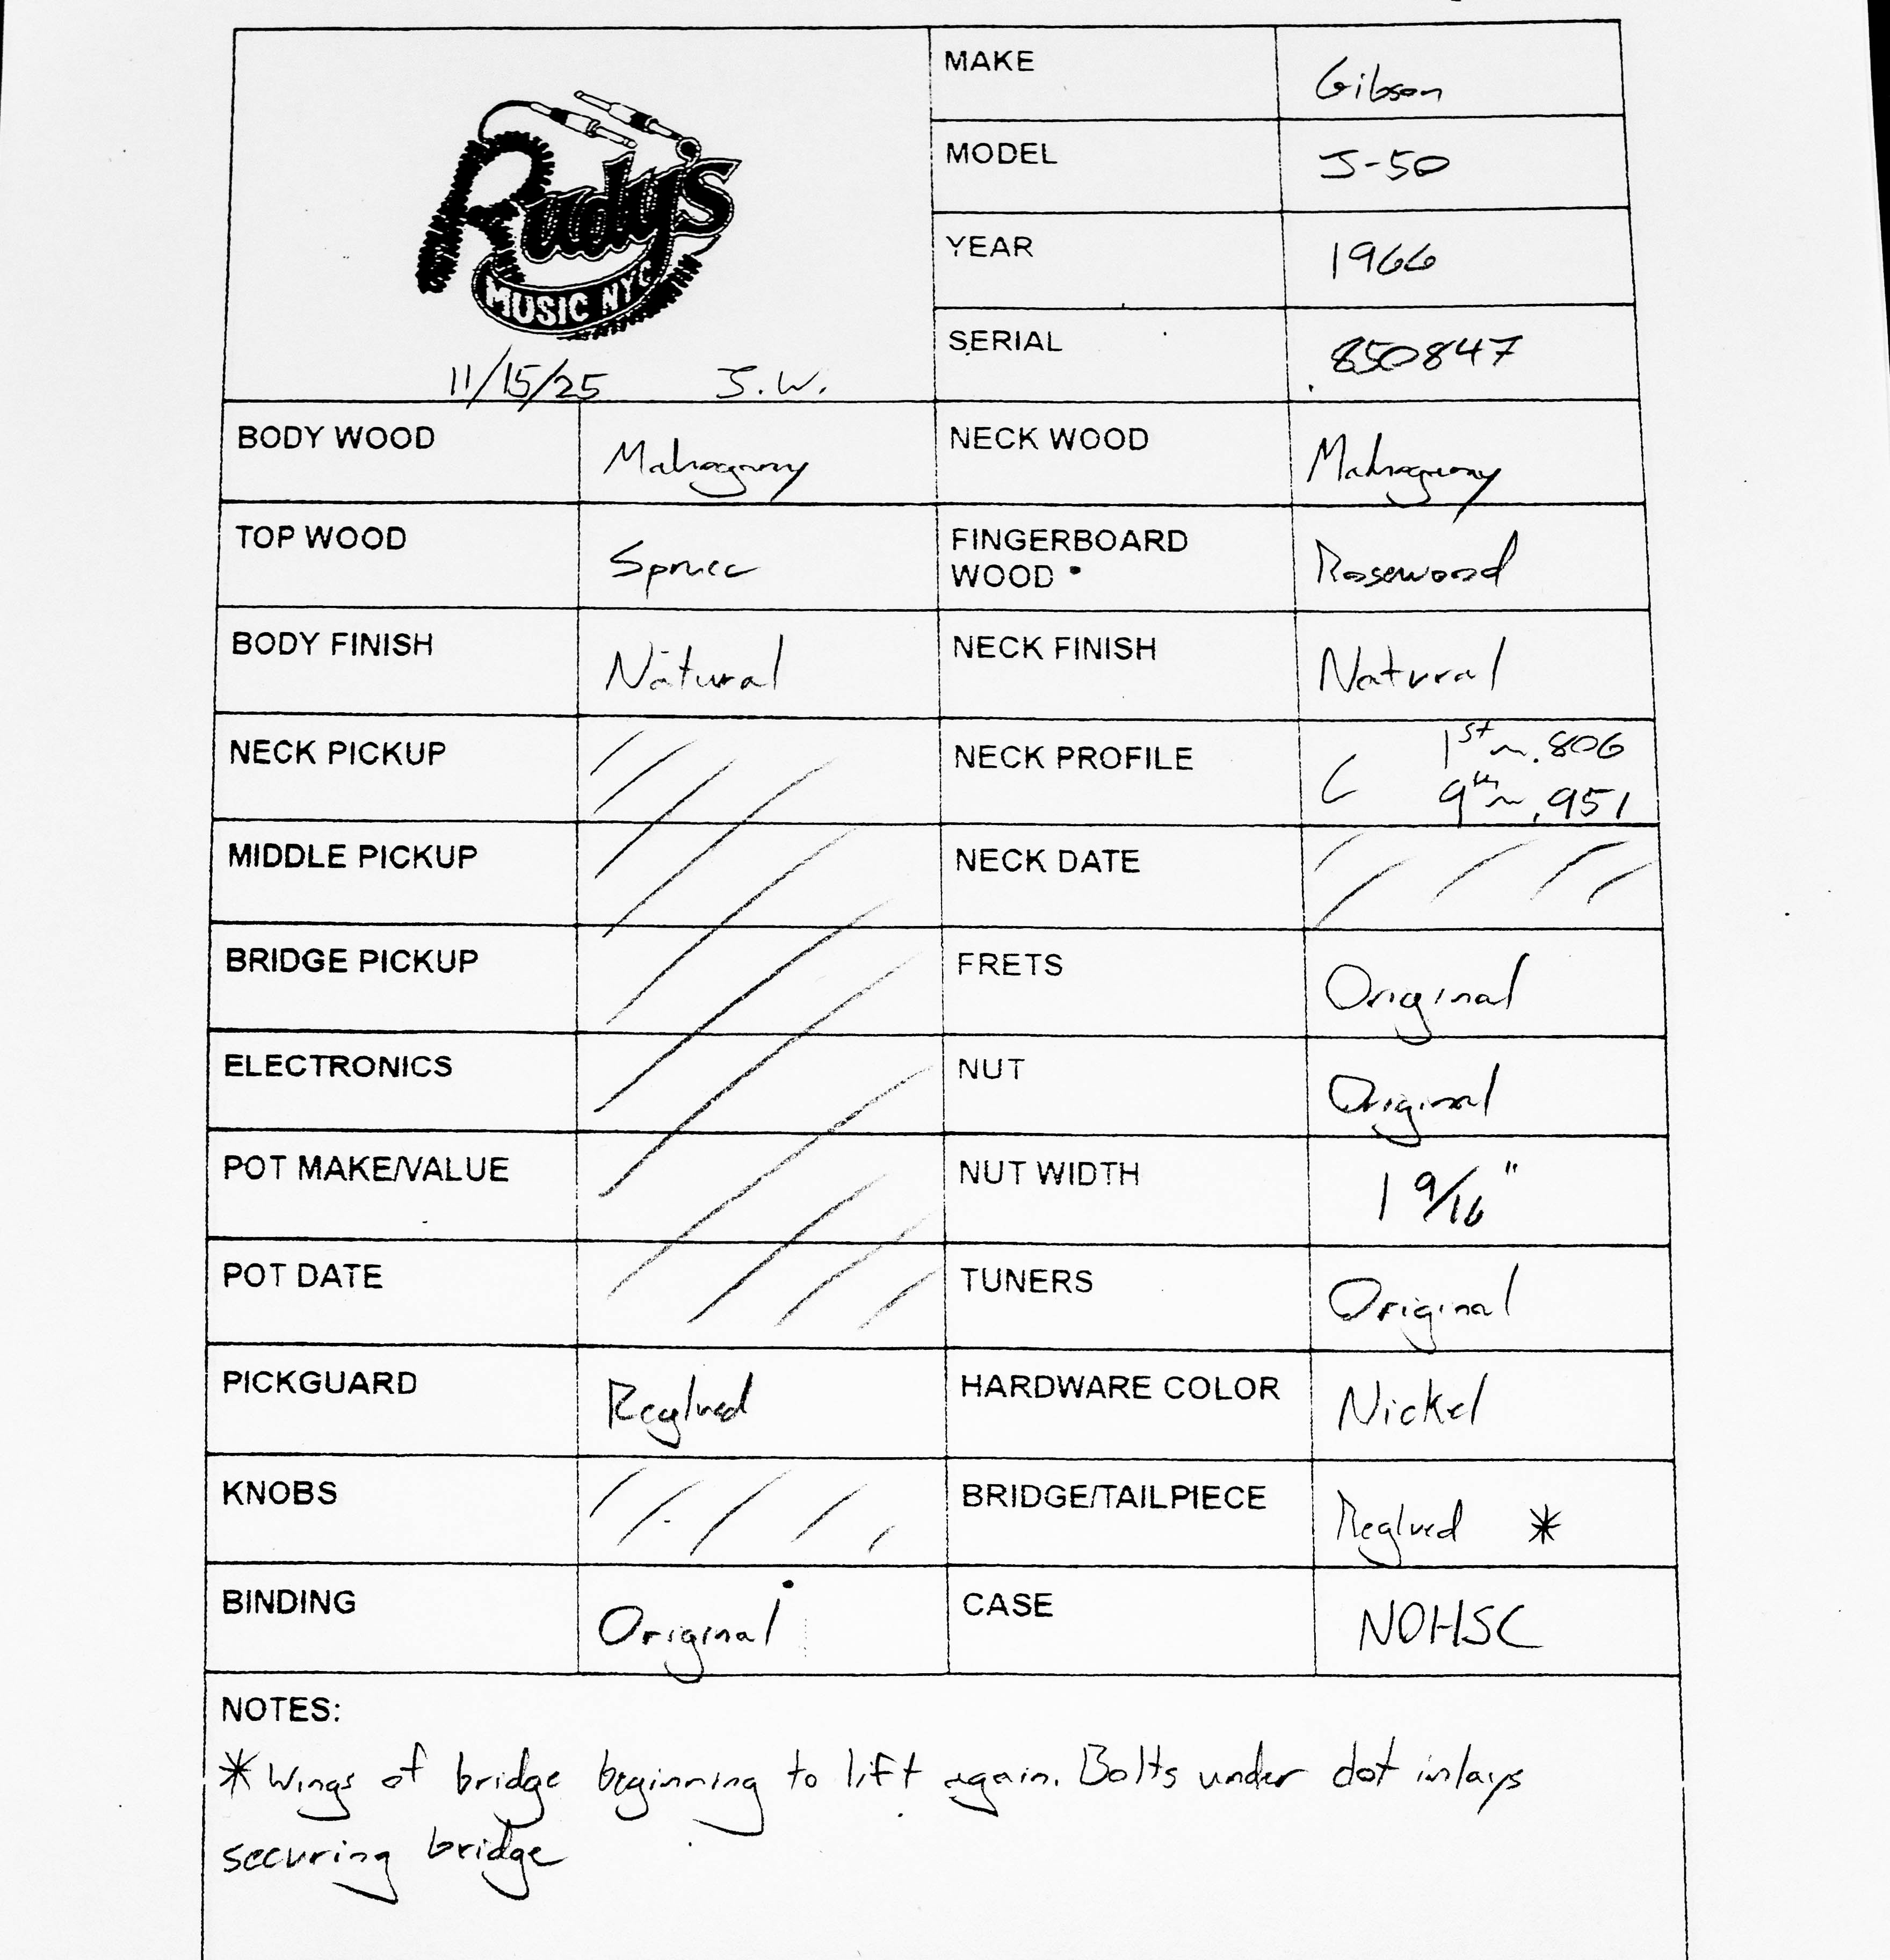 Rudy's
MUSIC NYC
11/15/25 J.W.
MAKE Gibson
MODEL J-50
YEAR 1966
SERIAL 850847
BODY WOOD Mahogany NECK WOOD Mahogany
TOP WOOD Spruce FINGERBOARD
WOOD Rosewood
BODY FINISH Natural NECK FINISH Natural
NECK PICKUP NECK PROFILE C 1st ~ .806
9th ~ .951
MIDDLE PICKUP NECK DATE
BRIDGE PICKUP FRETS Original
ELECTRONICS NUT Original
POT MAKE/VALUE NUT WIDTH 1 9/16"
POT DATE TUNERS Original
PICKGUARD Reglued HARDWARE COLOR Nickel
KNOBS BRIDGE/TAILPIECE Reglued *
BINDING Original CASE NOHSC
NOTES:
* Wings of bridge beginning to lift again. Bolts under dot inlays
securing bridge